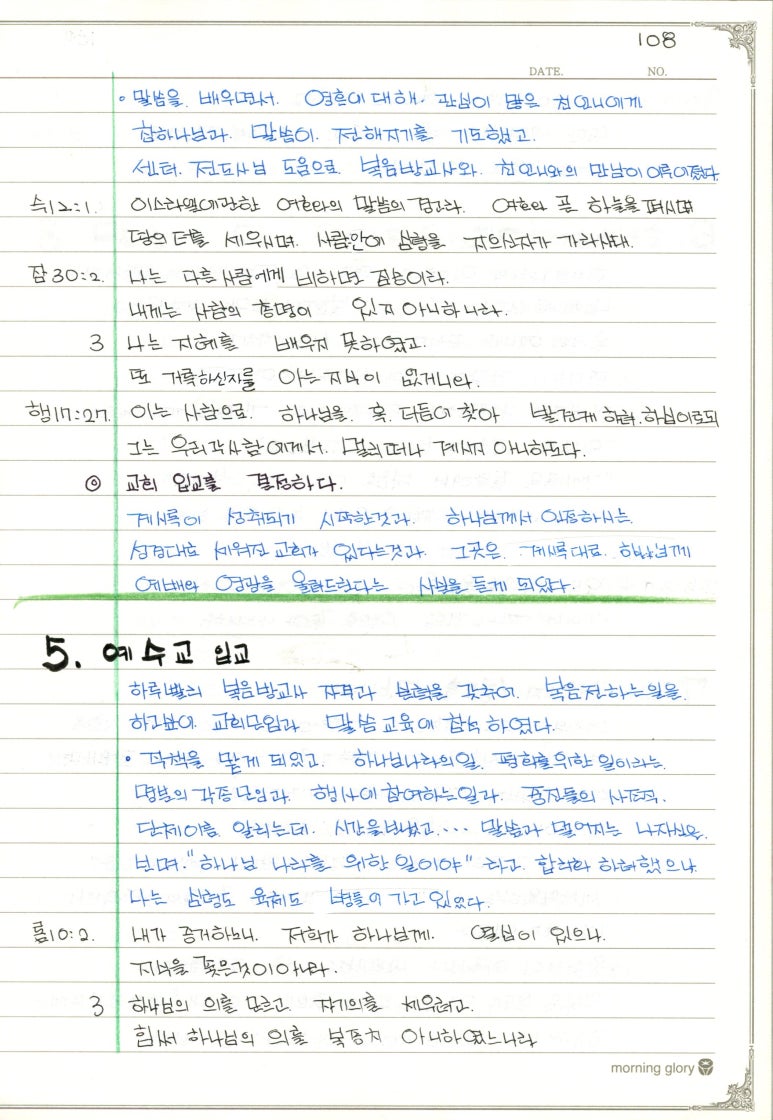 108
DATE. NO.
• 말씀을 배우면서. 영혼에 대해. 관심이 많은 친언니에게
참하나님과. 말씀이. 전해지기를 기도했고.
센터. 전도사님 도움으로. 복음방교사와. 친언니와의 만남이 이루어졌다.
슥12:1. 이스라엘에관한 여호와의 말씀의 경고라. 여호와 곧 하늘을 펴시며
땅의 터를 세우시며. 사람안에 심령을 지으신자가 가라사대.
잠30:2. 나는 다른 사람에게 비하면 짐승이라.
내게는 사람의 총명이 있지 아니하니라.
3 나는 지혜를 배우지 못하였고.
또 거룩하신자를 아는 지식이 없거니와.
행17:27. 이는 사람으로. 하나님을. 혹 더듬어 찾아 발견케 하려. 하심이로되
그는 우리 각사람에게서. 멀리 떠나 계시지 아니하도다.
◎ 교회 입교를 결정하다.
계시록이 성취되기 시작한것과. 하나님께서 인정하시는.
성경대로 세워진 교회가 있다는것과. 그곳은. 계시록대로. 하나님께
예배와 영광을 올려드린다는 사실을 듣게 되었다.
5. 예수교 입교
하루빨리 복음방교사 자격과 실력을 갖추어. 복음전하는일을.
하고싶어. 교회모임과 말씀 교육에 참석 하였다.
• 직책을 맡게 되었고. 하나님나라의일. 평화를위한 일이라는.
명분의 각종모임과. 행사에 참여하는일과. 중진들의 사조직.
단체이름 알리는데. 시간을보냈고.... 말씀과 멀어지는 나자신을.
보며. "하나님 나라를 위한 일이야" 라고. 합리화 하려했으나.
나는 심령도 육체도 병들어 가고 있었다.
롬10:2. 내가 증거하노니. 저희가 하나님께. 열심이 있으나.
지식을 좇은것이 아니라.
3 하나님의 의를 모르고. 자기의를 세우려고.
힘써 하나님의 의를 복종치 아니하였느니라
morning glory